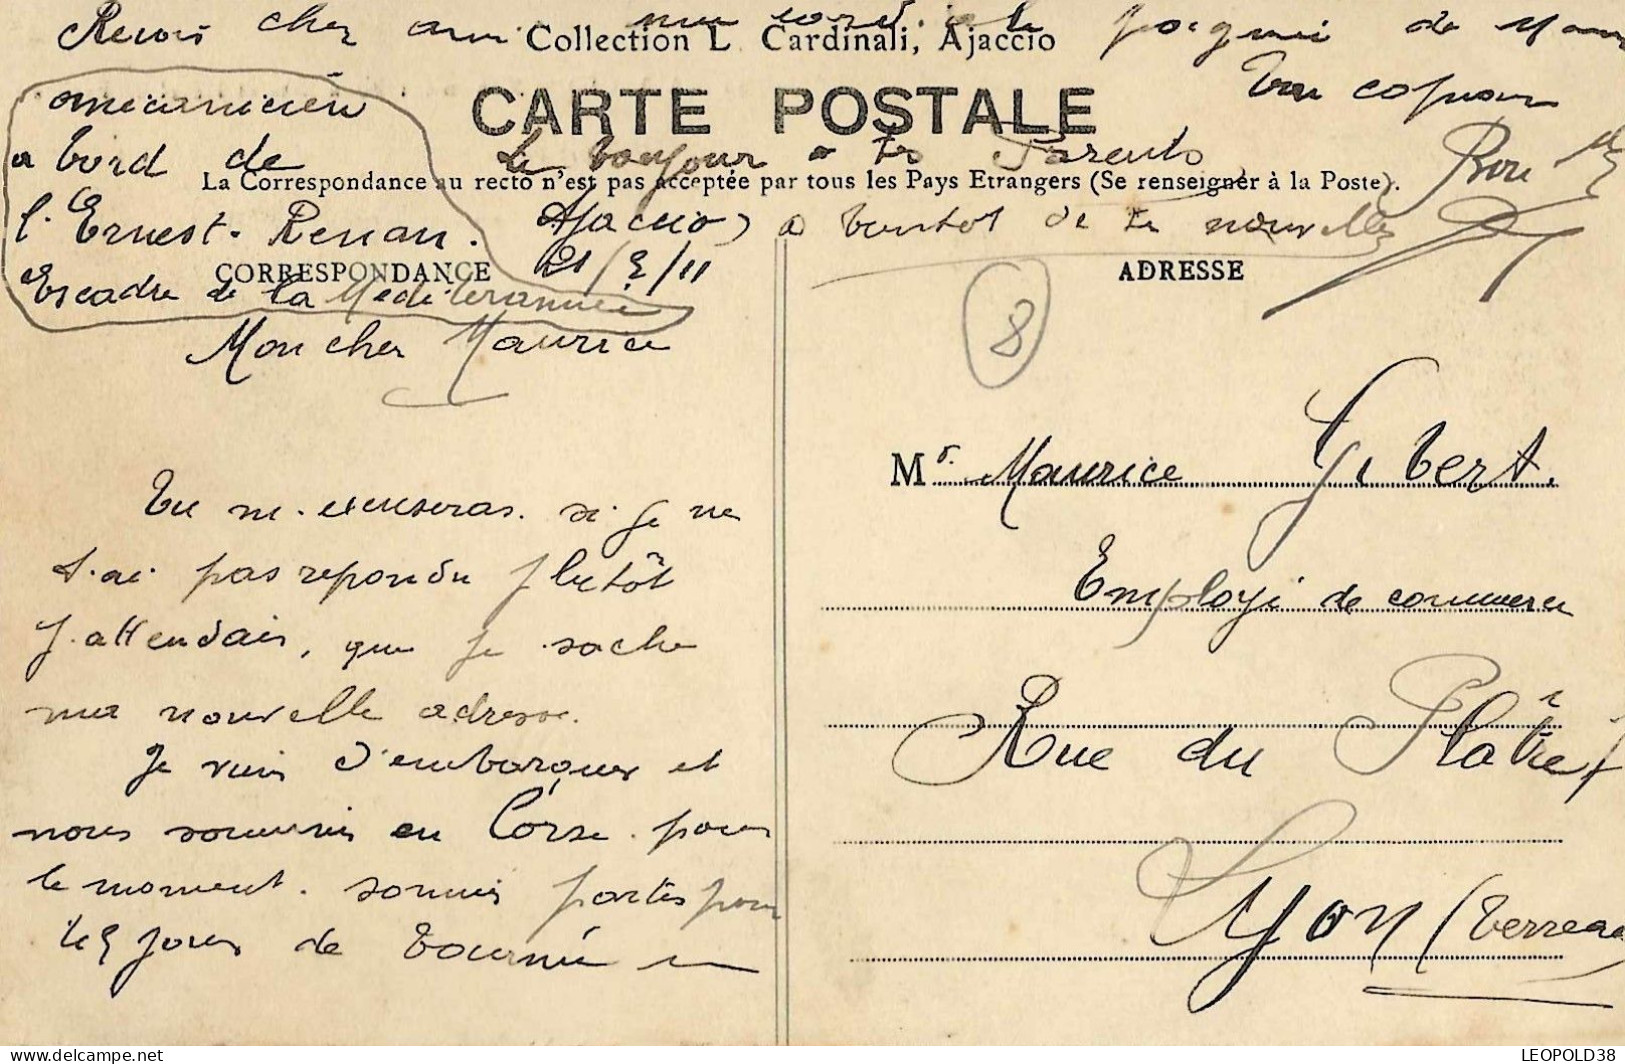 Recois cher ami une cordiale poignée de Main
Collection L. Cardinali, Ajaccio
Ton copain
CARTE POSTALE
mécanicien
a bord de
l'Ernest-Renan.
Escadre de la Mediterannée
Le bonjour a tes Parents
La Correspondance au recto n'est pas acceptée par tous les Pays Etrangers (Se renseigner à la Poste).
Ajaccio
a bientot de te nouvelles
21/5/11
CORRESPONDANCE
ADRESSE
8
Mon cher Maurice
Tu m'excuseras si je ne
t'ai pas repondu plutôt
J'attendais, que je sache
ma nouvelle adresse.
Je vien d'embarquer et
nous sommes en Corse pour
le moment. sommes partés pour
45 jours de tournée en
Mr. Maurice Gibert.
Employé de commerce
Rue du Plâtre 7
Lyon (Terreaux
LEOPOLD38